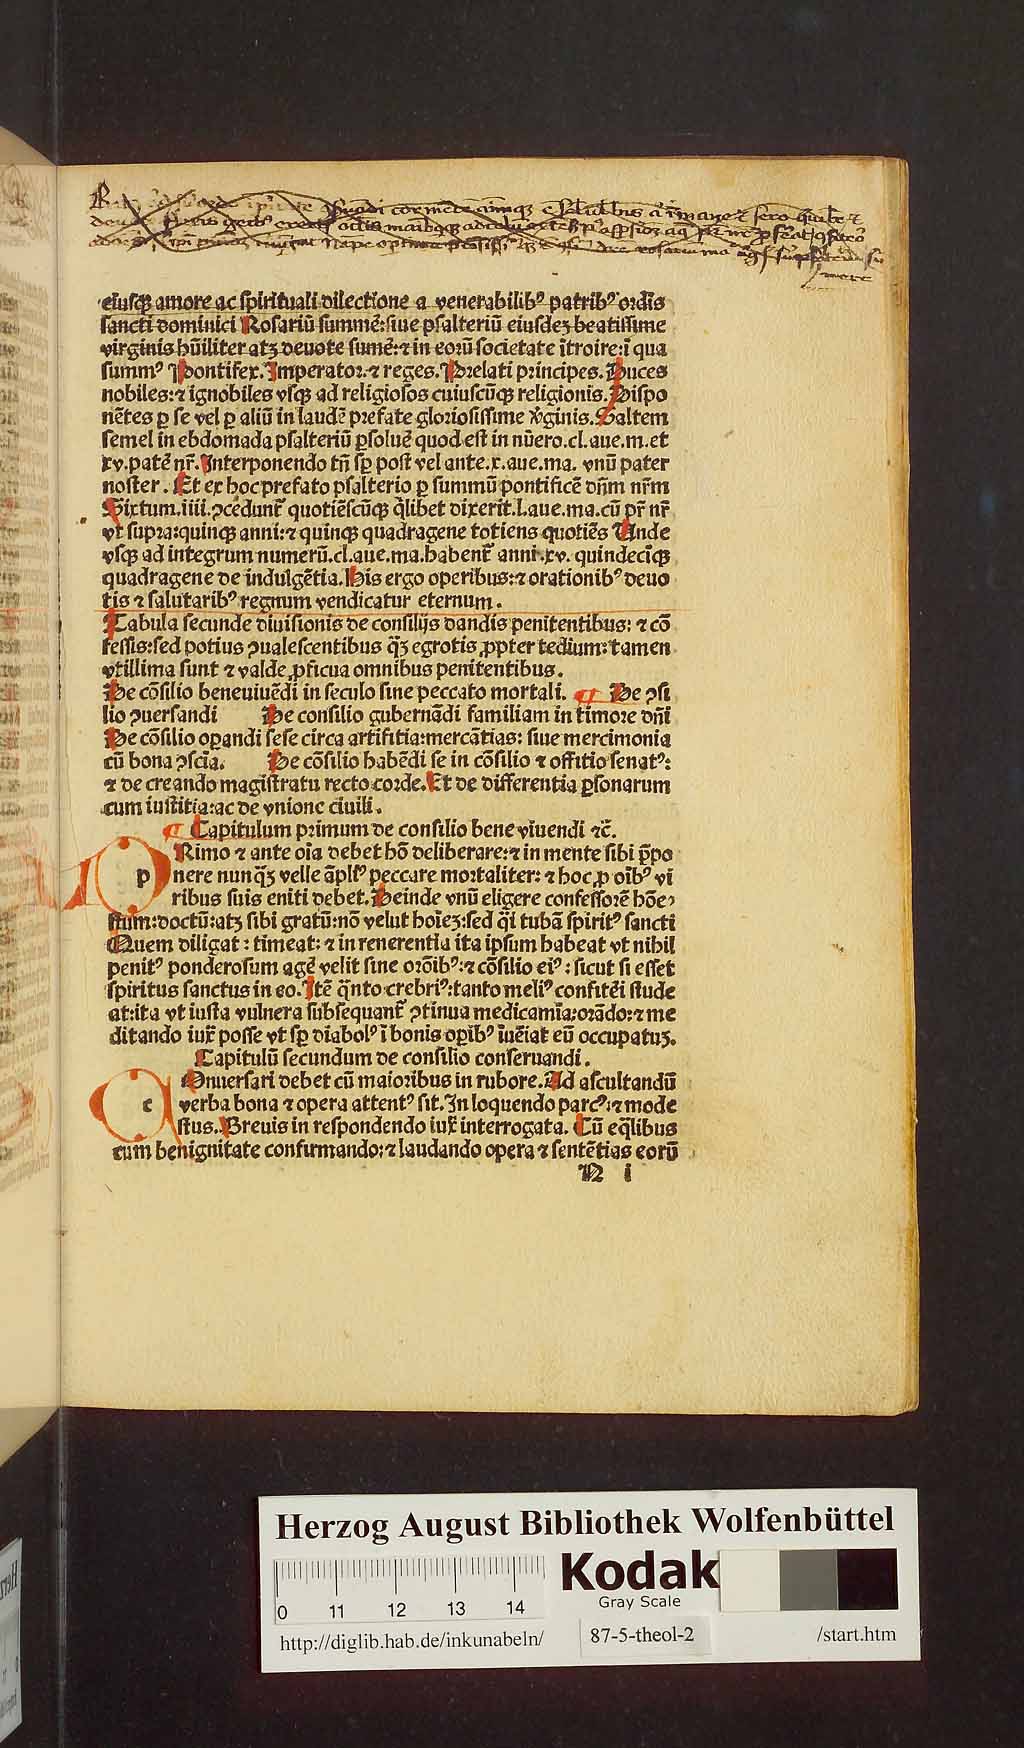 eiusqꝫ amore ac spirituali dilectione a venerabilibꝰ patribꝰ ordīs
sancti dominici Rosariū summē: siue psalteriū eiusdeꝫ beatissime
virginis hūiliter atqꝫ deuote sumē: ⁊ in eorū societate ītroire: ī qua
summꝰ Pontifex. Imperator. ⁊ reges. Prelati principes. Duces
nobiles: ⁊ ignobiles vsqꝫ ad religiosos cuiuscūqꝫ religionis. Dispo
nētes ꝑ se vel ꝑ aliū in laudē prefate gloriosissime v̄ginis. Saltem
semel in ebdomada psalteriū ꝑsoluē quod est in nūero. cl. aue. m. et
xv. patē nr̄. Interponendo tn̄ sꝑ post vel ante. x. aue. ma. vnū pater
noster. Et ex hoc prefato psalterio ꝑ summū pontificē dn̄m nr̄m
Sixtum. iiii. ꝯcedunt̄ quotiēscūqꝫ q̄libet dixerit. l. aue. ma. cū pr̄ nr̄
vt supra: quinqꝫ anni: ⁊ quinqꝫ quadragene totiens quotiēs Unde
vsqꝫ ad integrum numerū. cl. aue. ma. habent̄ anni. xv. quindeciqꝫ
quadragene de indulgētia. His ergo operibus: ⁊ orationibꝰ deuo
tis ⁊ salutaribꝰ regnum vendicatur eternum.
Tabula secunde diuisionis de consilijs dandis penitentibus: ⁊ cō
fessis: sed potius ꝯualescentibus q̄ꝫ egrotis ꝓpter tedium: tamen
vtillima sunt ⁊ valde ꝓficua omnibus penitentibus.
De cōsilio beneuiuēdi in seculo sine peccato mortali. ¶ De ꝯsi
lio ꝯuersandi De consilio gubernādi familiam in timore dn̄i
De cōsilio oꝑandi sese circa artifitia: mercātias: siue mercimonia
cū bona ꝯscīa. De cōsilio habēdi se in cōsilio ⁊ offitio senatꝰ:
⁊ de creando magistratu recto corde. Et de differentia ꝑsonarum
cum iustitia: ac de vnione ciuili.
¶ Capitulum primum de consilio bene viuendi ⁊c̄.
pRimo ⁊ ante oīa debet hō deliberare: ⁊ in mente sibi p̄po
nere nunq̄ꝫ velle āplꝰ peccare mortaliter: ⁊ hoc ꝓ oībꝰ vi
ribus suis eniti debet. Deinde vnū eligere confessorē hōe
stum: doctū: atqꝫ sibi gratū: nō velut hoīeꝫ: sed q̄i tubā spiritꝰ sancti
Quem diligat: timeat: ⁊ in renerentia ita ipsum habeat vt nihil
penitꝰ ponderosum agē velit sine orōibꝰ: ⁊ cōsilio eiꝰ: sicut si esset
spiritus sanctus in eo. Itē q̄nto crebriꝰ: tanto meliꝰ confitēi stude
at: ita vt iusta vulnera subsequant̄ ꝯtinua medicamīa: orādo: ⁊ me
ditando iux̄ posse vt sꝑ diabolꝰ ī bonis oꝑibꝰ īuēiat eū occupatuꝫ.
Capitulū secundum de consilio conseruandi.
cOnuersari debet cū maioribus in rubore. Ad ascultandū
verba bona ⁊ opera attentꝰ sit. In loquendo parcꝰ: ⁊ mode
stus. Breuis in respondendo iux̄ interrogata. Cū eq̄libus
cum benignitate confirmando: ⁊ laudando opera ⁊ sentētias eorū
N i
Herzog August Bibliothek Wolfenbüttel
0 11 12 13 14
Kodak
Gray Scale
http://diglib.hab.de/inkunabeln/ 87-5-theol-2 /start.htm